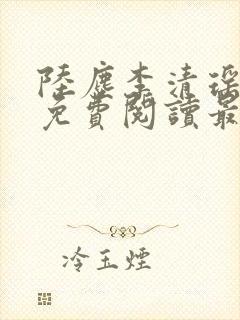 陸塵李清瑤
免費閱讀最
冷玉煙